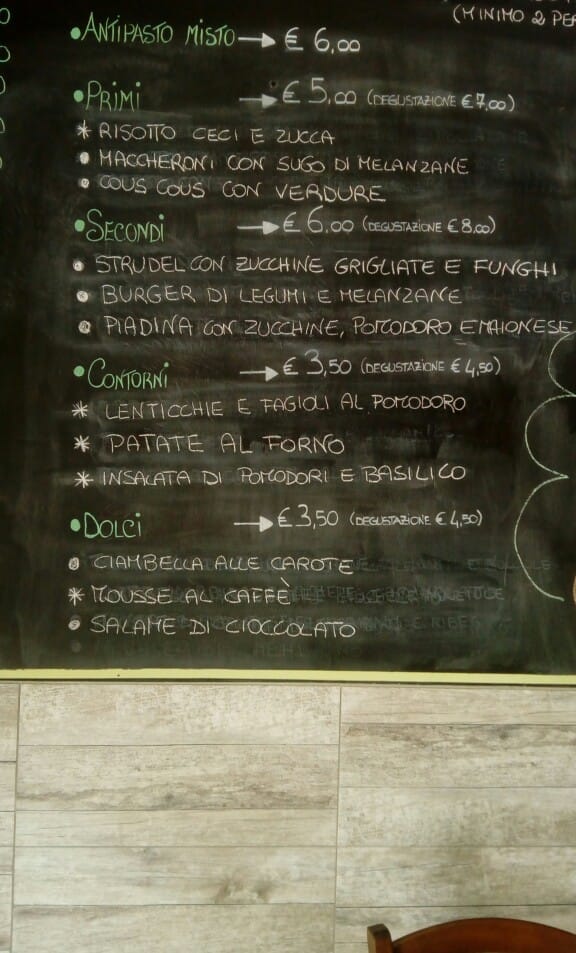 (MINIMO 2 PE
• ANTIPASTO MISTO → € 6,00
• PRIMI → € 5,00 (DEGUSTAZIONE € 7,00)
* RISOTTO CECI E ZUCCA
• MACCHERONI CON SUGO DI MELANZANE
• COUS COUS CON VERDURE
• SECONDI → € 6,00 (DEGUSTAZIONE € 8,00)
• STRUDEL CON ZUCCHINE GRIGLIATE E FUNGHI
• BURGER DI LEGUMI E MELANZANE
• PIADINA CON ZUCCHINE, POMODORO E MAIONESE
• CONTORNI → € 3,50 (DEGUSTAZIONE € 4,50)
* LENTICCHIE E FAGIOLI AL POMODORO
* PATATE AL FORNO
* INSALATA DI POMODORI E BASILICO
• DOLCI → € 3,50 (DEGUSTAZIONE € 4,50)
• CIAMBELLA ALLE CAROTE
* MOUSSE AL CAFFÈ
• SALAME DI CIOCCOLATO